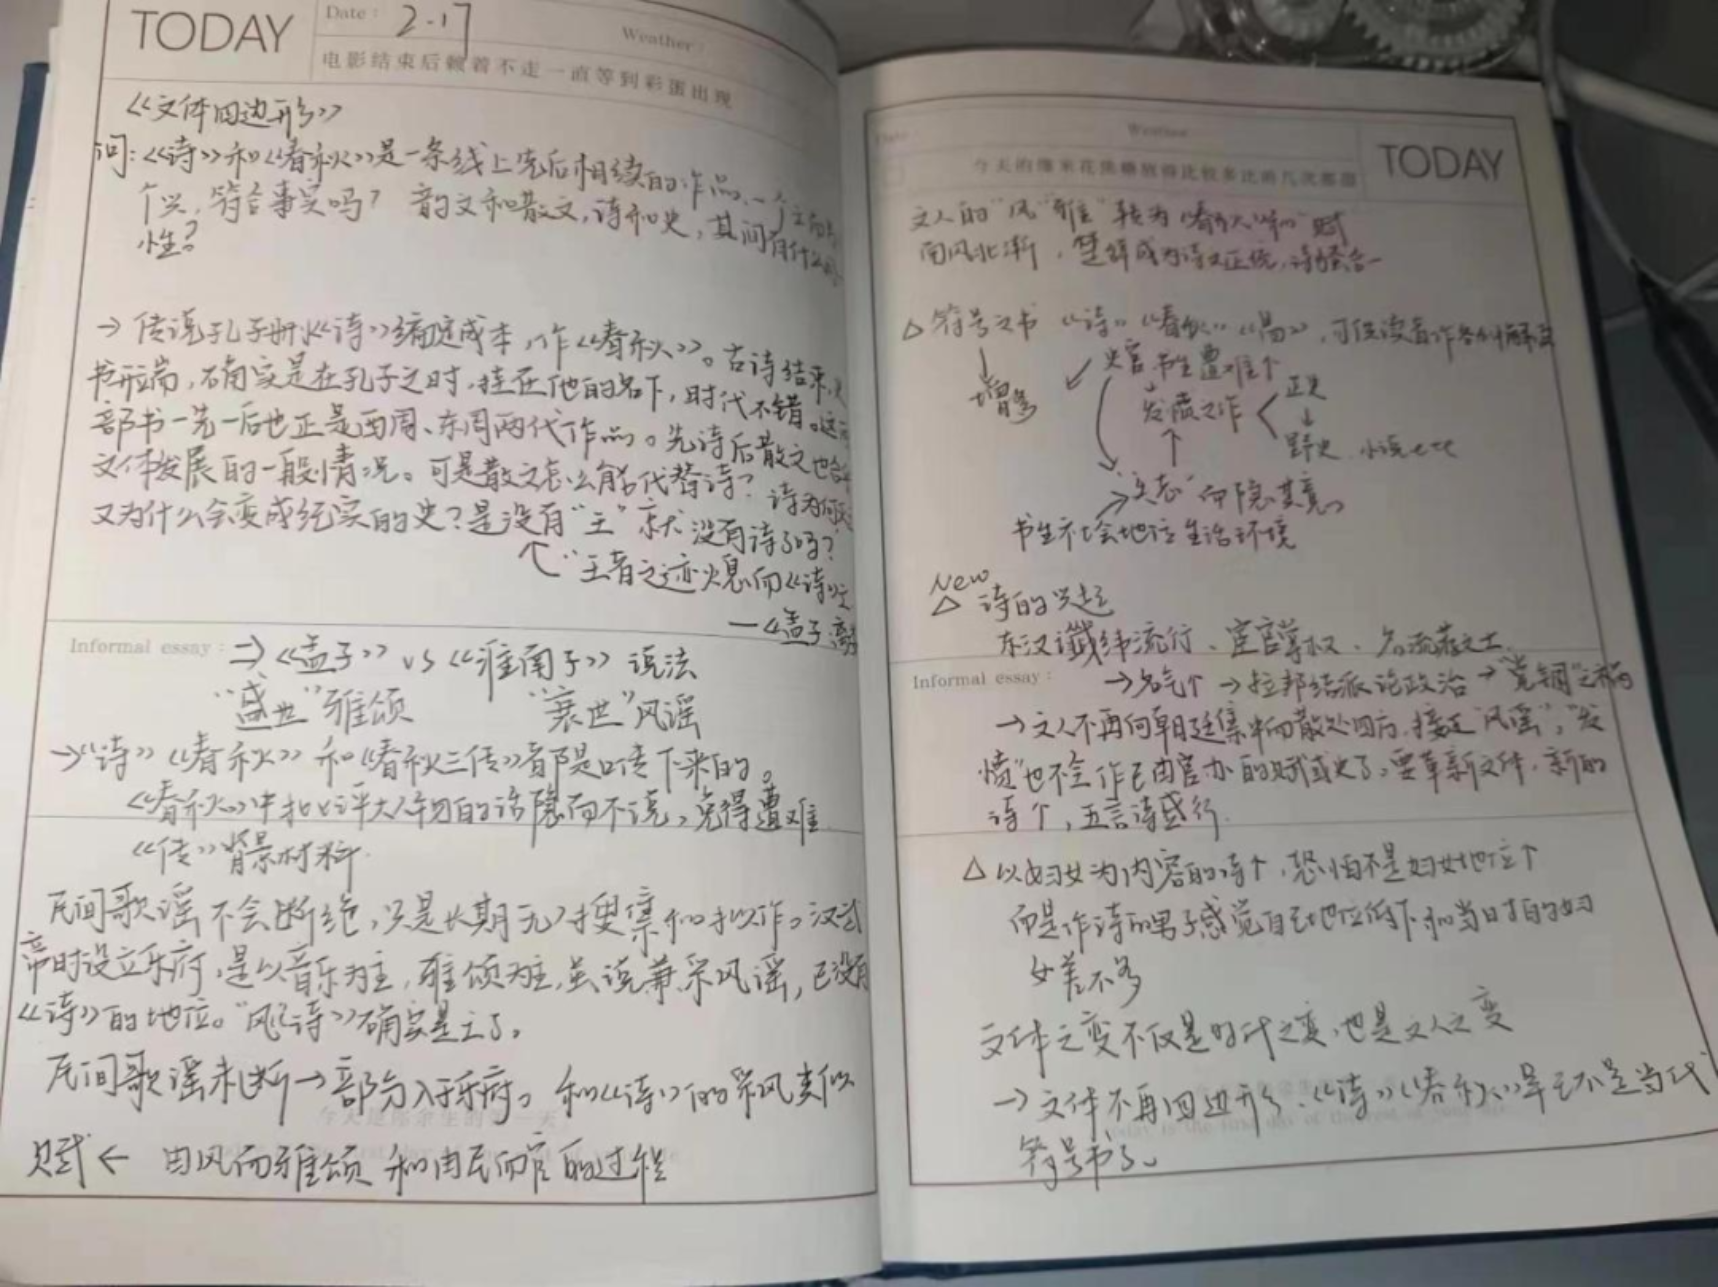 TODAY
Date: 2.17
Weather:
电影结束后赖着不走一直等到彩蛋出现
《文体四边形》
问:《诗》和《春秋》是一条线上先后相续的作品,一个
个兴,符合事实吗? 韵文和散文,诗和史,其间有什么
性?
→ 传说孔子删《诗》编定成本,作《春秋》。古诗结束,
书开端,确实是在孔子之时,挂在他的名下,时代不错。这
部书一先一后也正是西周、东周两代作品。先诗后散文也合
文体发展的一般情况。可是散文怎么能代替诗? 诗为何
又为什么会变成纪实的史?是没有“王”就没有诗了吗?
↑“王者之迹熄而《诗》亡
—《孟子·离
Informal essay: ⇒《孟子》vs《淮南子》说法
“盛世”雅颂 “衰世”风谣
→《诗》《春秋》和《春秋三传》都是口传下来的。
《春秋》中批评大人物的话隐而不说,免得遭难
《传》背景材料.
民间歌谣不会断绝,只是长期无人搜集和拟作。汉武
帝时设立乐府,是以音乐为主,雅颂为主,虽说兼采风谣,已没有
《诗》的地位。“风”《诗》确实是亡了。
民间歌谣未断→部分入于乐府。和《诗》的采风类似
赋 ← 由风而雅颂 和由民而官的过程
Weather
TODAY
文人的“风”“雅”转为 赋
南风北渐,楚辞成为诗文正统,诗骚合一
△ 符号之书 《诗》《春秋》《易》,可供读者作各别解说
↓ ↙ 史官书生遭难个
增多 发愤之作 < 正史
↑ ↓
野史、小说
“矢志” 而隐其意。
书生社会地位生活环境
New
△ 诗的兴起
东汉谶纬流行、宦官掌权、名流
Informal essay: →名气个 →拉邦结派论政治→“党锢”之祸
→文人不再向朝廷集中而散处四方,接近“风谣”,“发
愤”也不会作已由官办的赋或史了。要革新文体,新的
诗个,五言诗盛行.
△ 以妇女为内容的诗个,恐怕不是妇女地位个
而是作诗的男子感觉自己地位低下和当时的妇
女差不多
文体之变不仅是时代之变,也是文人之变
→ 文体不再四边形了:《诗》《春秋》早已不是当代
符号书了。